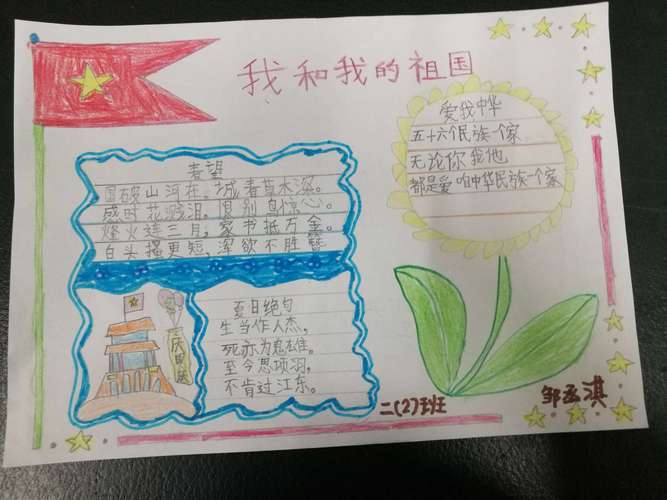 我和我的祖国
春望
国破山河在。城春草木深。
感时花溅泪。恨别鸟惊心。
烽火连三月；家书抵万金。
白头搔更短，浑欲不胜簪
庆国庆
夏日绝句
生当作人杰，
死亦为鬼雄。
至今思项羽，
不肯过江东。
爱我中华
五十六个民族一个家
无论你我他
都是爱咱中华民族一个家
二(2)班
邹孟淇